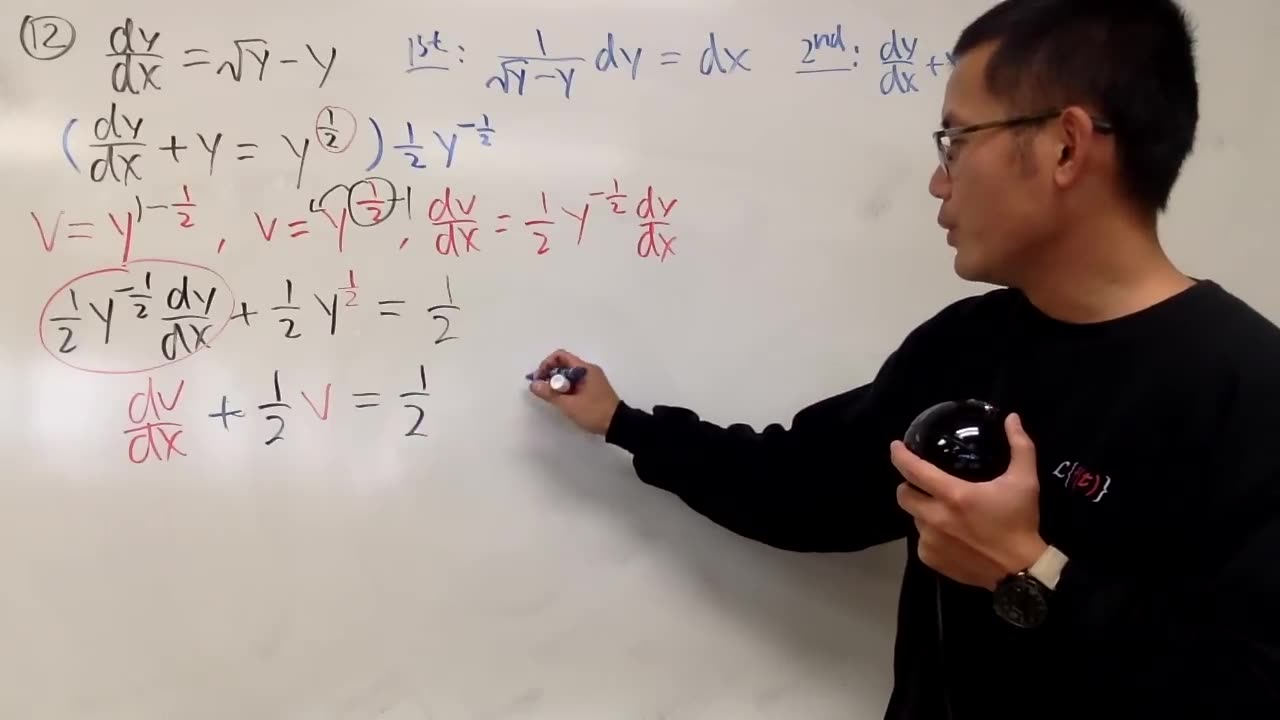 ⑫ dy/dx = √y - y   1st: 1/(√y - y) dy = dx   2nd: dy/dx +
(dy/dx + y = y^(1/2)) 1/2 y^(-1/2)
V = y^(1-1/2), V = y^(1/2), dv/dx = 1/2 y^(-1/2) dy/dx
1/2 y^(-1/2) dy/dx + 1/2 y^(1/2) = 1/2
dv/dx + 1/2 V = 1/2
ℒ{f(t)}